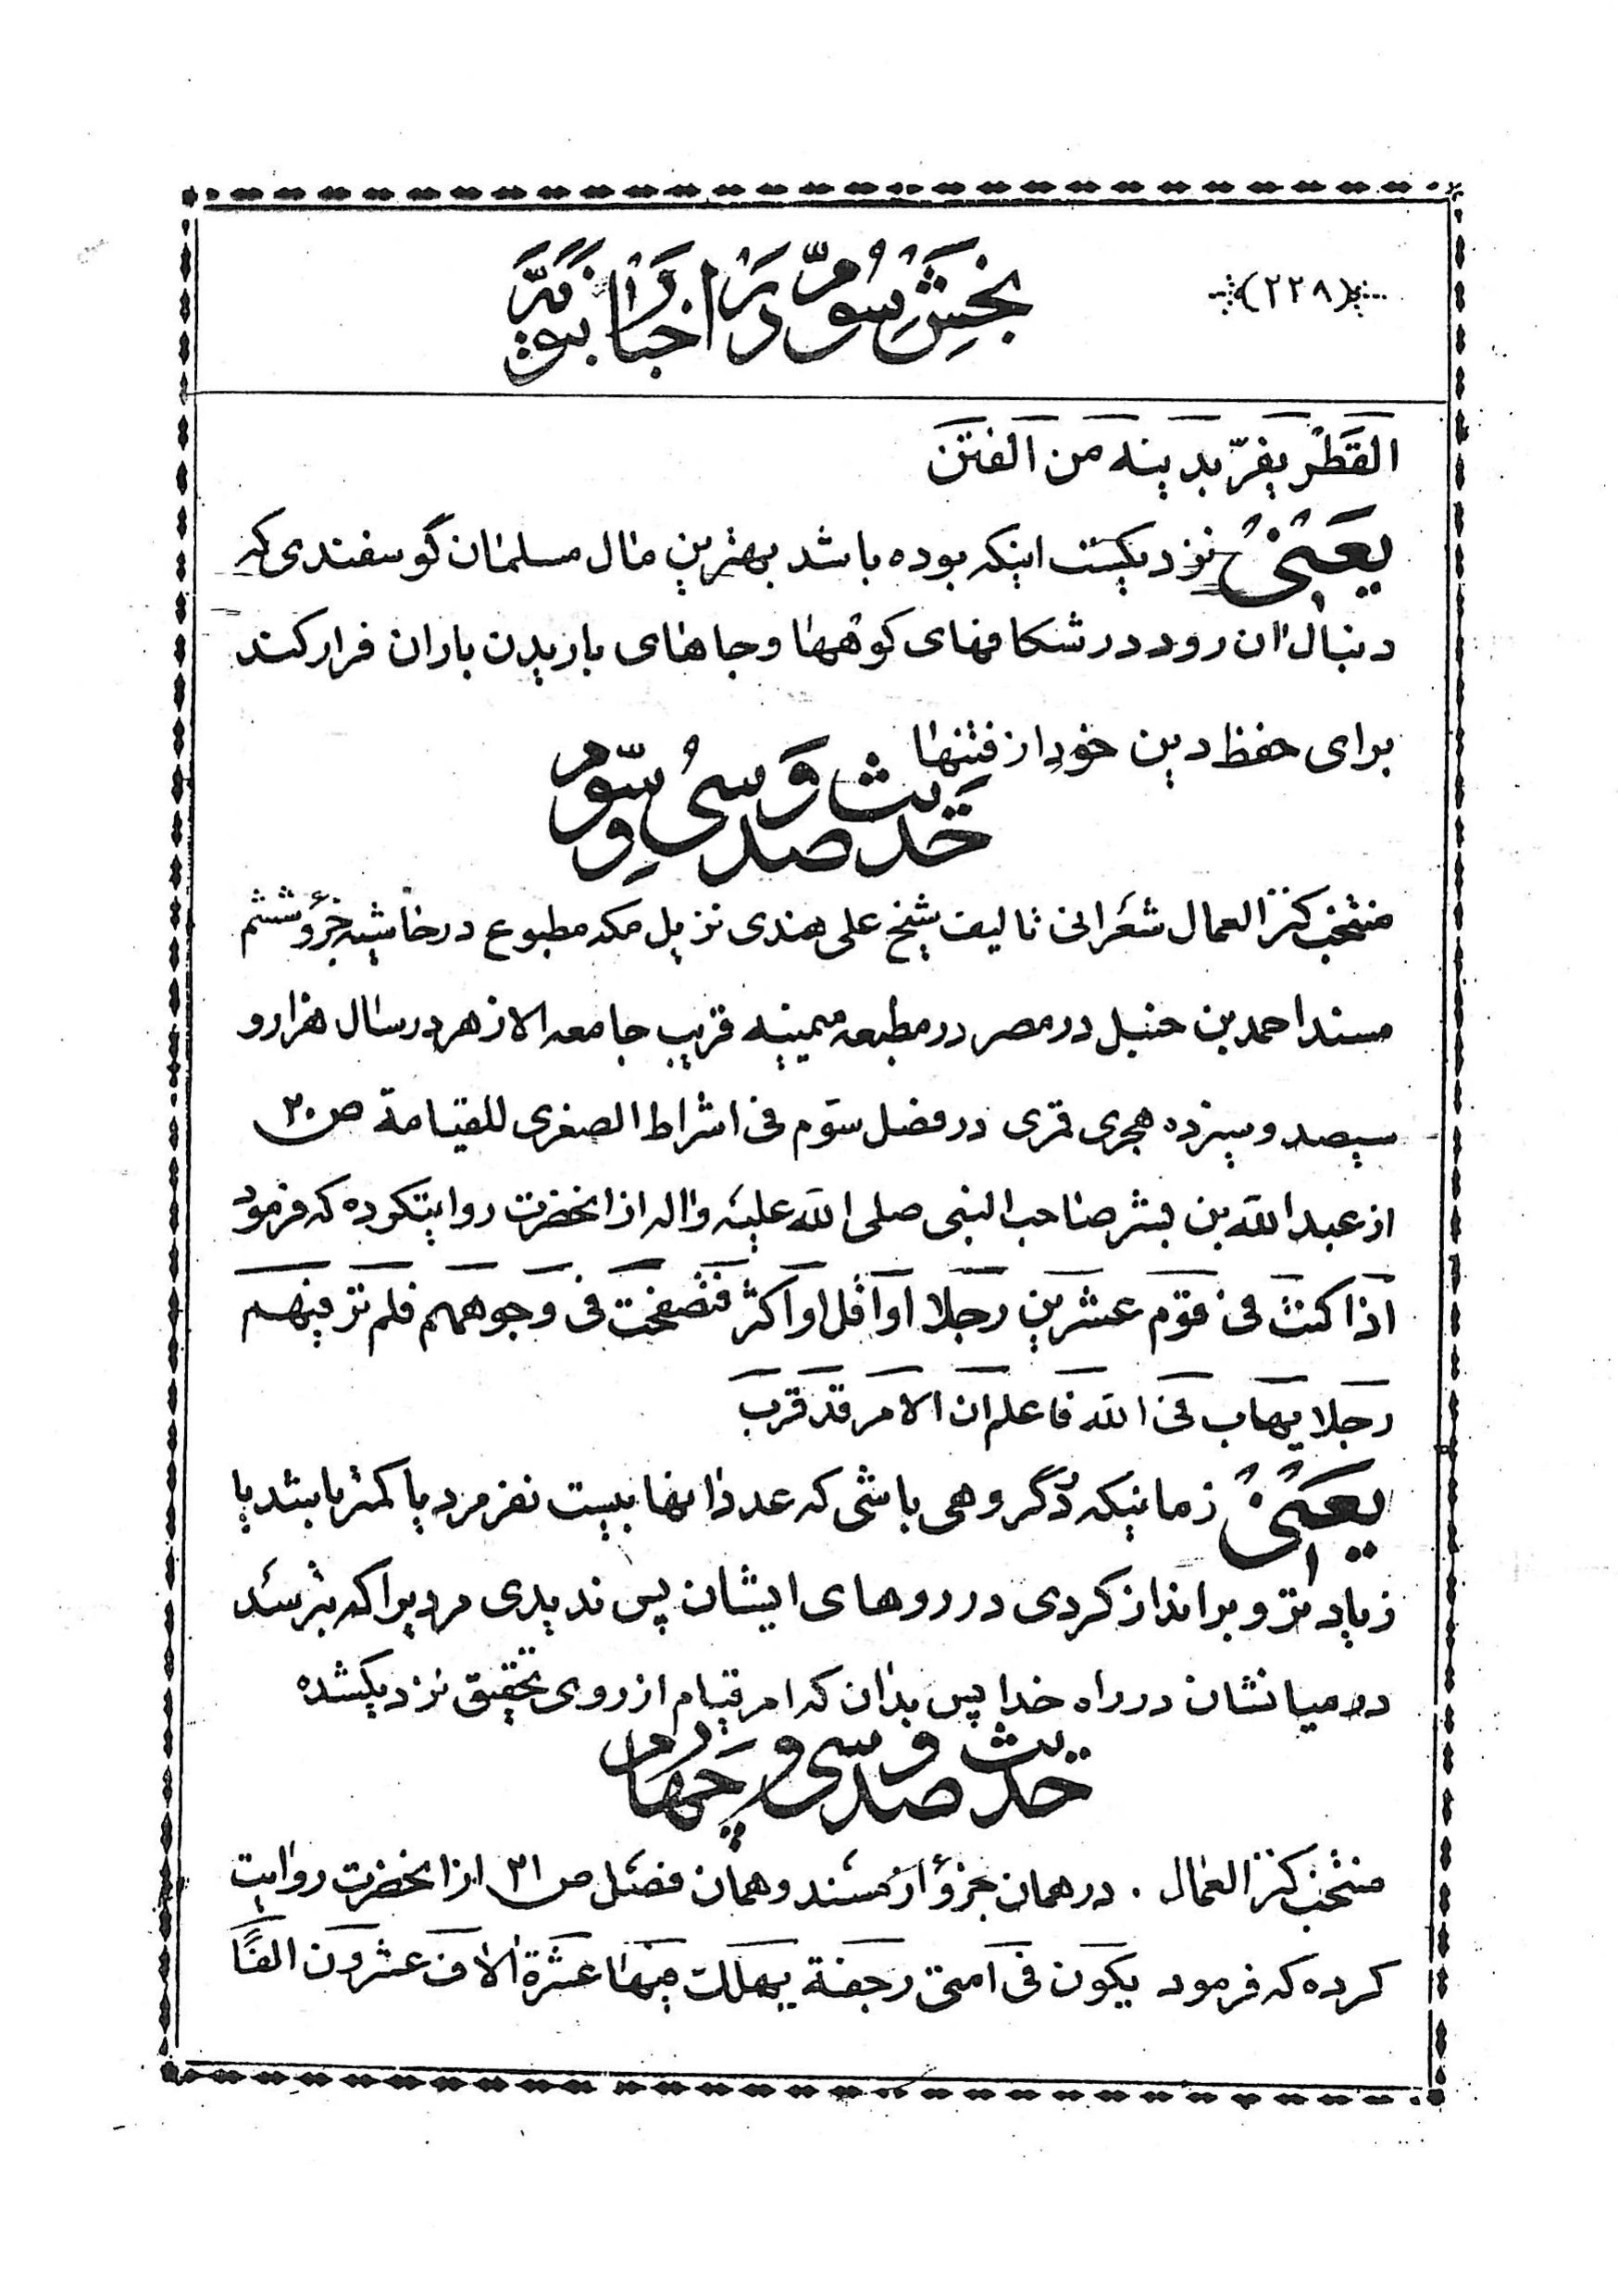 (۲۲۸)
بخش سوم در اخبار نبویه
القطر یفرّ بدینه من الفتن
یعنی نزدیکست اینکه بوده باشد بهترین مال مسلمان گوسفندی که
دنبال ان رود در شکافهای کوهها و جاهای باریدن باران فرار کند
برای حفظ دین خود از فتنها
حدیث صد و سی و سوم
منتخب کنز العمال شعرانی تالیف شیخ علی هندی نزیل مکه مطبوع در حاشیه جزؤ ششم
مسند احمد بن حنبل در مصر در مطبعه میمینیه قریب جامعه الازهر در سال هزار و
سیصد و سیزده هجری قمری در فصل سوّم فی اشراط الصغری للقیامة ص ۲۰
از عبد الله بن بشر صاحب النبی صلی الله علیه واله از انحضرت روایتکرده که فرمود
اذا کنت فی قوم عشرین رجلا او اقل او اکثر فتصفحت فی وجوههم فلم تر فیهم
رجلا یهاب فی الله فاعلم ان الامر قد قرب
یعنی زمانیکه در گروهی باشی که عدد انها بیست نفر مرد یا کمتر باشد یا
زیادتر و برانداز کردی در روهای ایشان پس ندیدی مردیرا که بترسد
در میانشان در راه خدا پس بدان که امر قیام از روی تحقیق نزدیکشده
حدیث صد و سی و چهارم
منتخب کنز العمال . در همان جزؤ از مسند و همان فصل ص ۲۱ از انحضرت روایت
کرده که فرمود یکون فی امتی رجفة یهلك فیها عشرة الاف عشرون الفًا